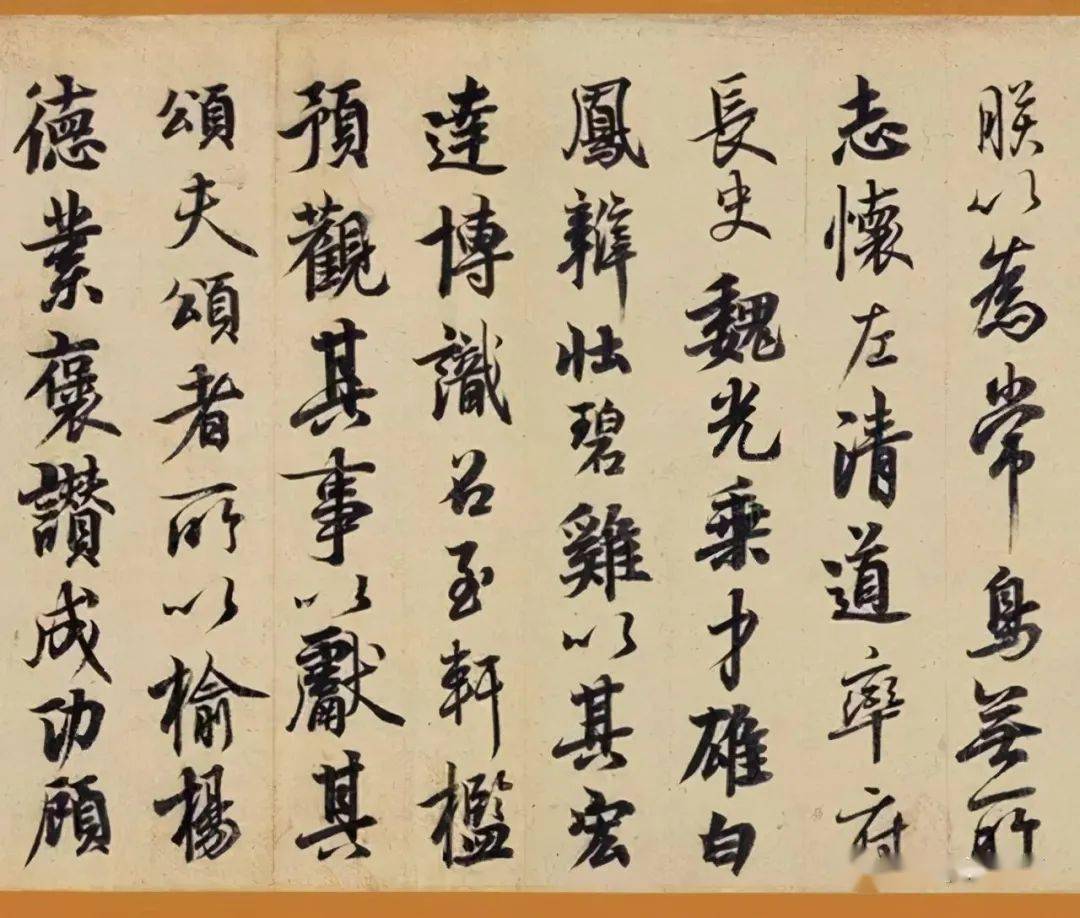 朕以為常鳥無所
志懷左清道率府
長史魏光乗才雄白
鳳辯壯碧雞以其宏
達博識召至軒檻
預觀其事以獻其
頌夫頌者所以榆楊
德業褒讚成功顧